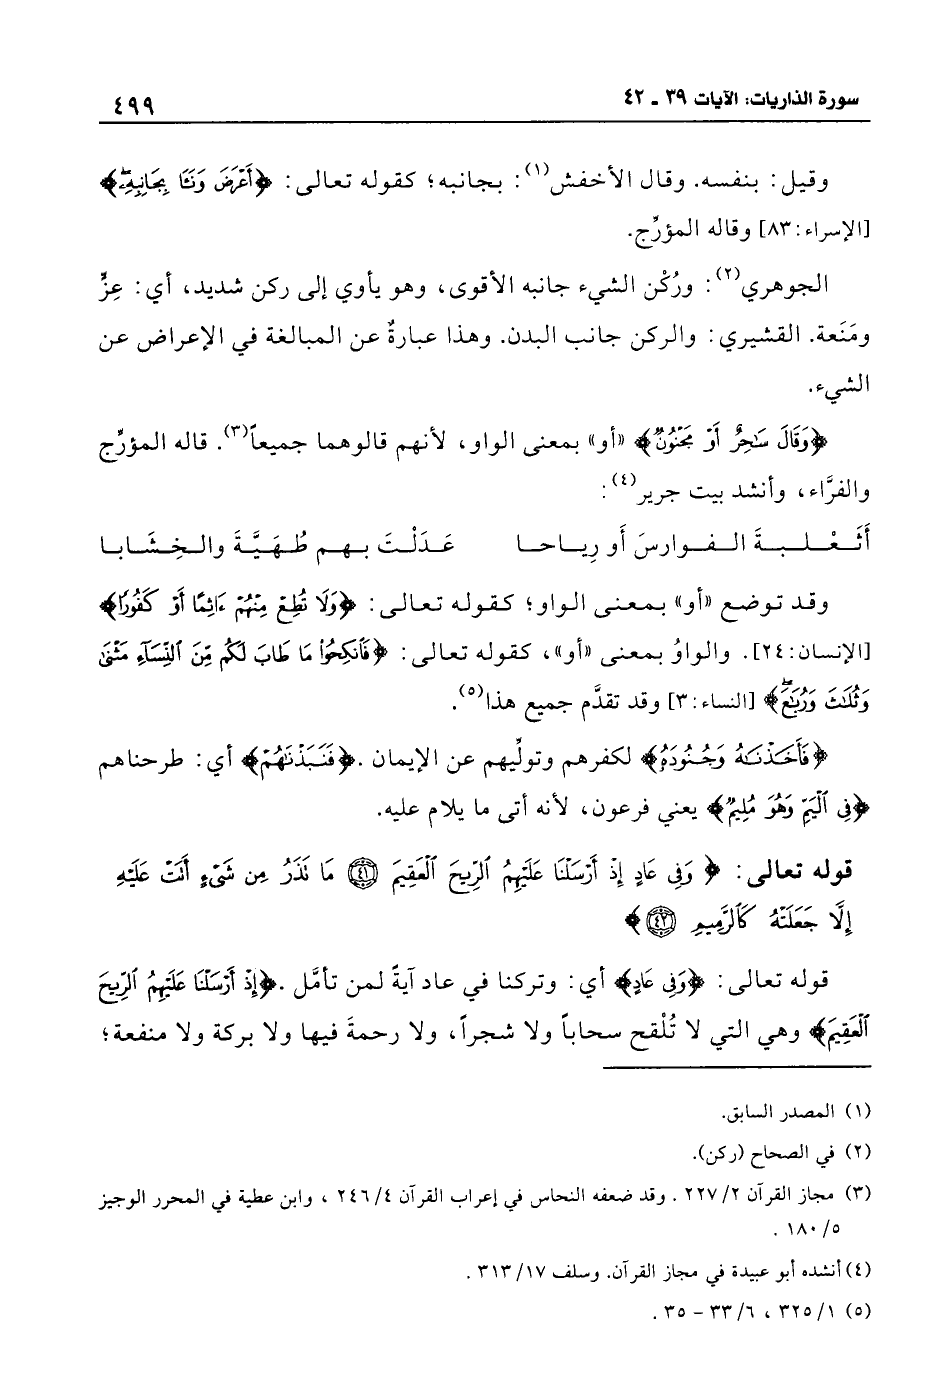 سورة الذاريات: الآيات ٣٩ ـ ٤٢
٤٩٩
وقيل: بنفسه. وقال الأخفش(١): بجانبه؛ كقوله تعالى: ﴿أَعْرَضَ وَنَـَٔا بِجَانِبِهِۦ﴾
[الإسراء:٨٣] وقاله المؤرِّج.
الجوهري(٢): ورُكْن الشيء جانبه الأقوى، وهو يأوي إلى ركن شديد، أي: عِزٍّ
ومَنَعة. القشيري: والركن جانب البدن. وهذا عبارةٌ عن المبالغة في الإعراض عن
الشيء.
﴿وَقَالَ سَٰحِرٌ أَوْ مَجْنُونٌ﴾ «أو» بمعنى الواو، لأنهم قالوهما جميعاً(٣). قاله المؤرِّج
والفرَّاء، وأنشد بيت جرير(٤):
أَثَعْلَبَةَ الفوارسَ أو رِياحا عَدَلْتَ بهم طُهَيَّةَ والخِشَابا
وقد توضع «أو» بمعنى الواو؛ كقوله تعالى: ﴿وَلَا تُطِعْ مِنْهُمْ ءَاثِمًا أَوْ كَفُورًا﴾
[الإنسان:٢٤]. والواوُ بمعنى «أو»، كقوله تعالى: ﴿فَٱنكِحُوا۟ مَا طَابَ لَكُم مِّنَ ٱلنِّسَآءِ مَثْنَىٰ
وَثُلَٰثَ وَرُبَٰعَ﴾ [النساء:٣] وقد تقدَّم جميع هذا(٥).
﴿فَأَخَذْنَٰهُ وَجُنُودَهُۥ﴾ لكفرهم وتولِّيهم عن الإيمان. ﴿فَنَبَذْنَٰهُمْ﴾ أي: طرحناهم
﴿فِى ٱلْيَمِّ وَهُوَ مُلِيمٌ﴾ يعني فرعون، لأنه أتى ما يلام عليه.
قوله تعالى: ﴿وَفِى عَادٍ إِذْ أَرْسَلْنَا عَلَيْهِمُ ٱلرِّيحَ ٱلْعَقِيمَ ٤١ مَا تَذَرُ مِن شَىْءٍ أَتَتْ عَلَيْهِ
إِلَّا جَعَلَتْهُ كَٱلرَّمِيمِ ٤٢﴾
قوله تعالى: ﴿وَفِى عَادٍ﴾ أي: وتركنا في عاد آيةً لمن تأمَّل. ﴿إِذْ أَرْسَلْنَا عَلَيْهِمُ ٱلرِّيحَ
ٱلْعَقِيمَ﴾ وهي التي لا تُلْقح سحاباً ولا شجراً، ولا رحمةَ فيها ولا بركة ولا منفعة؛
(١) المصدر السابق.
(٢) في الصحاح (ركن).
(٣) مجاز القرآن ٢/٢٢٧. وقد ضعفه النحاس في إعراب القرآن ٤/٢٤٦، وابن عطية في المحرر الوجيز
٥/١٨٠.
(٤) أنشده أبو عبيدة في مجاز القرآن. وسلف ١٧/٣١٣.
(٥) ١/٣٢٥، ٦/٣٣ – ٣٥.